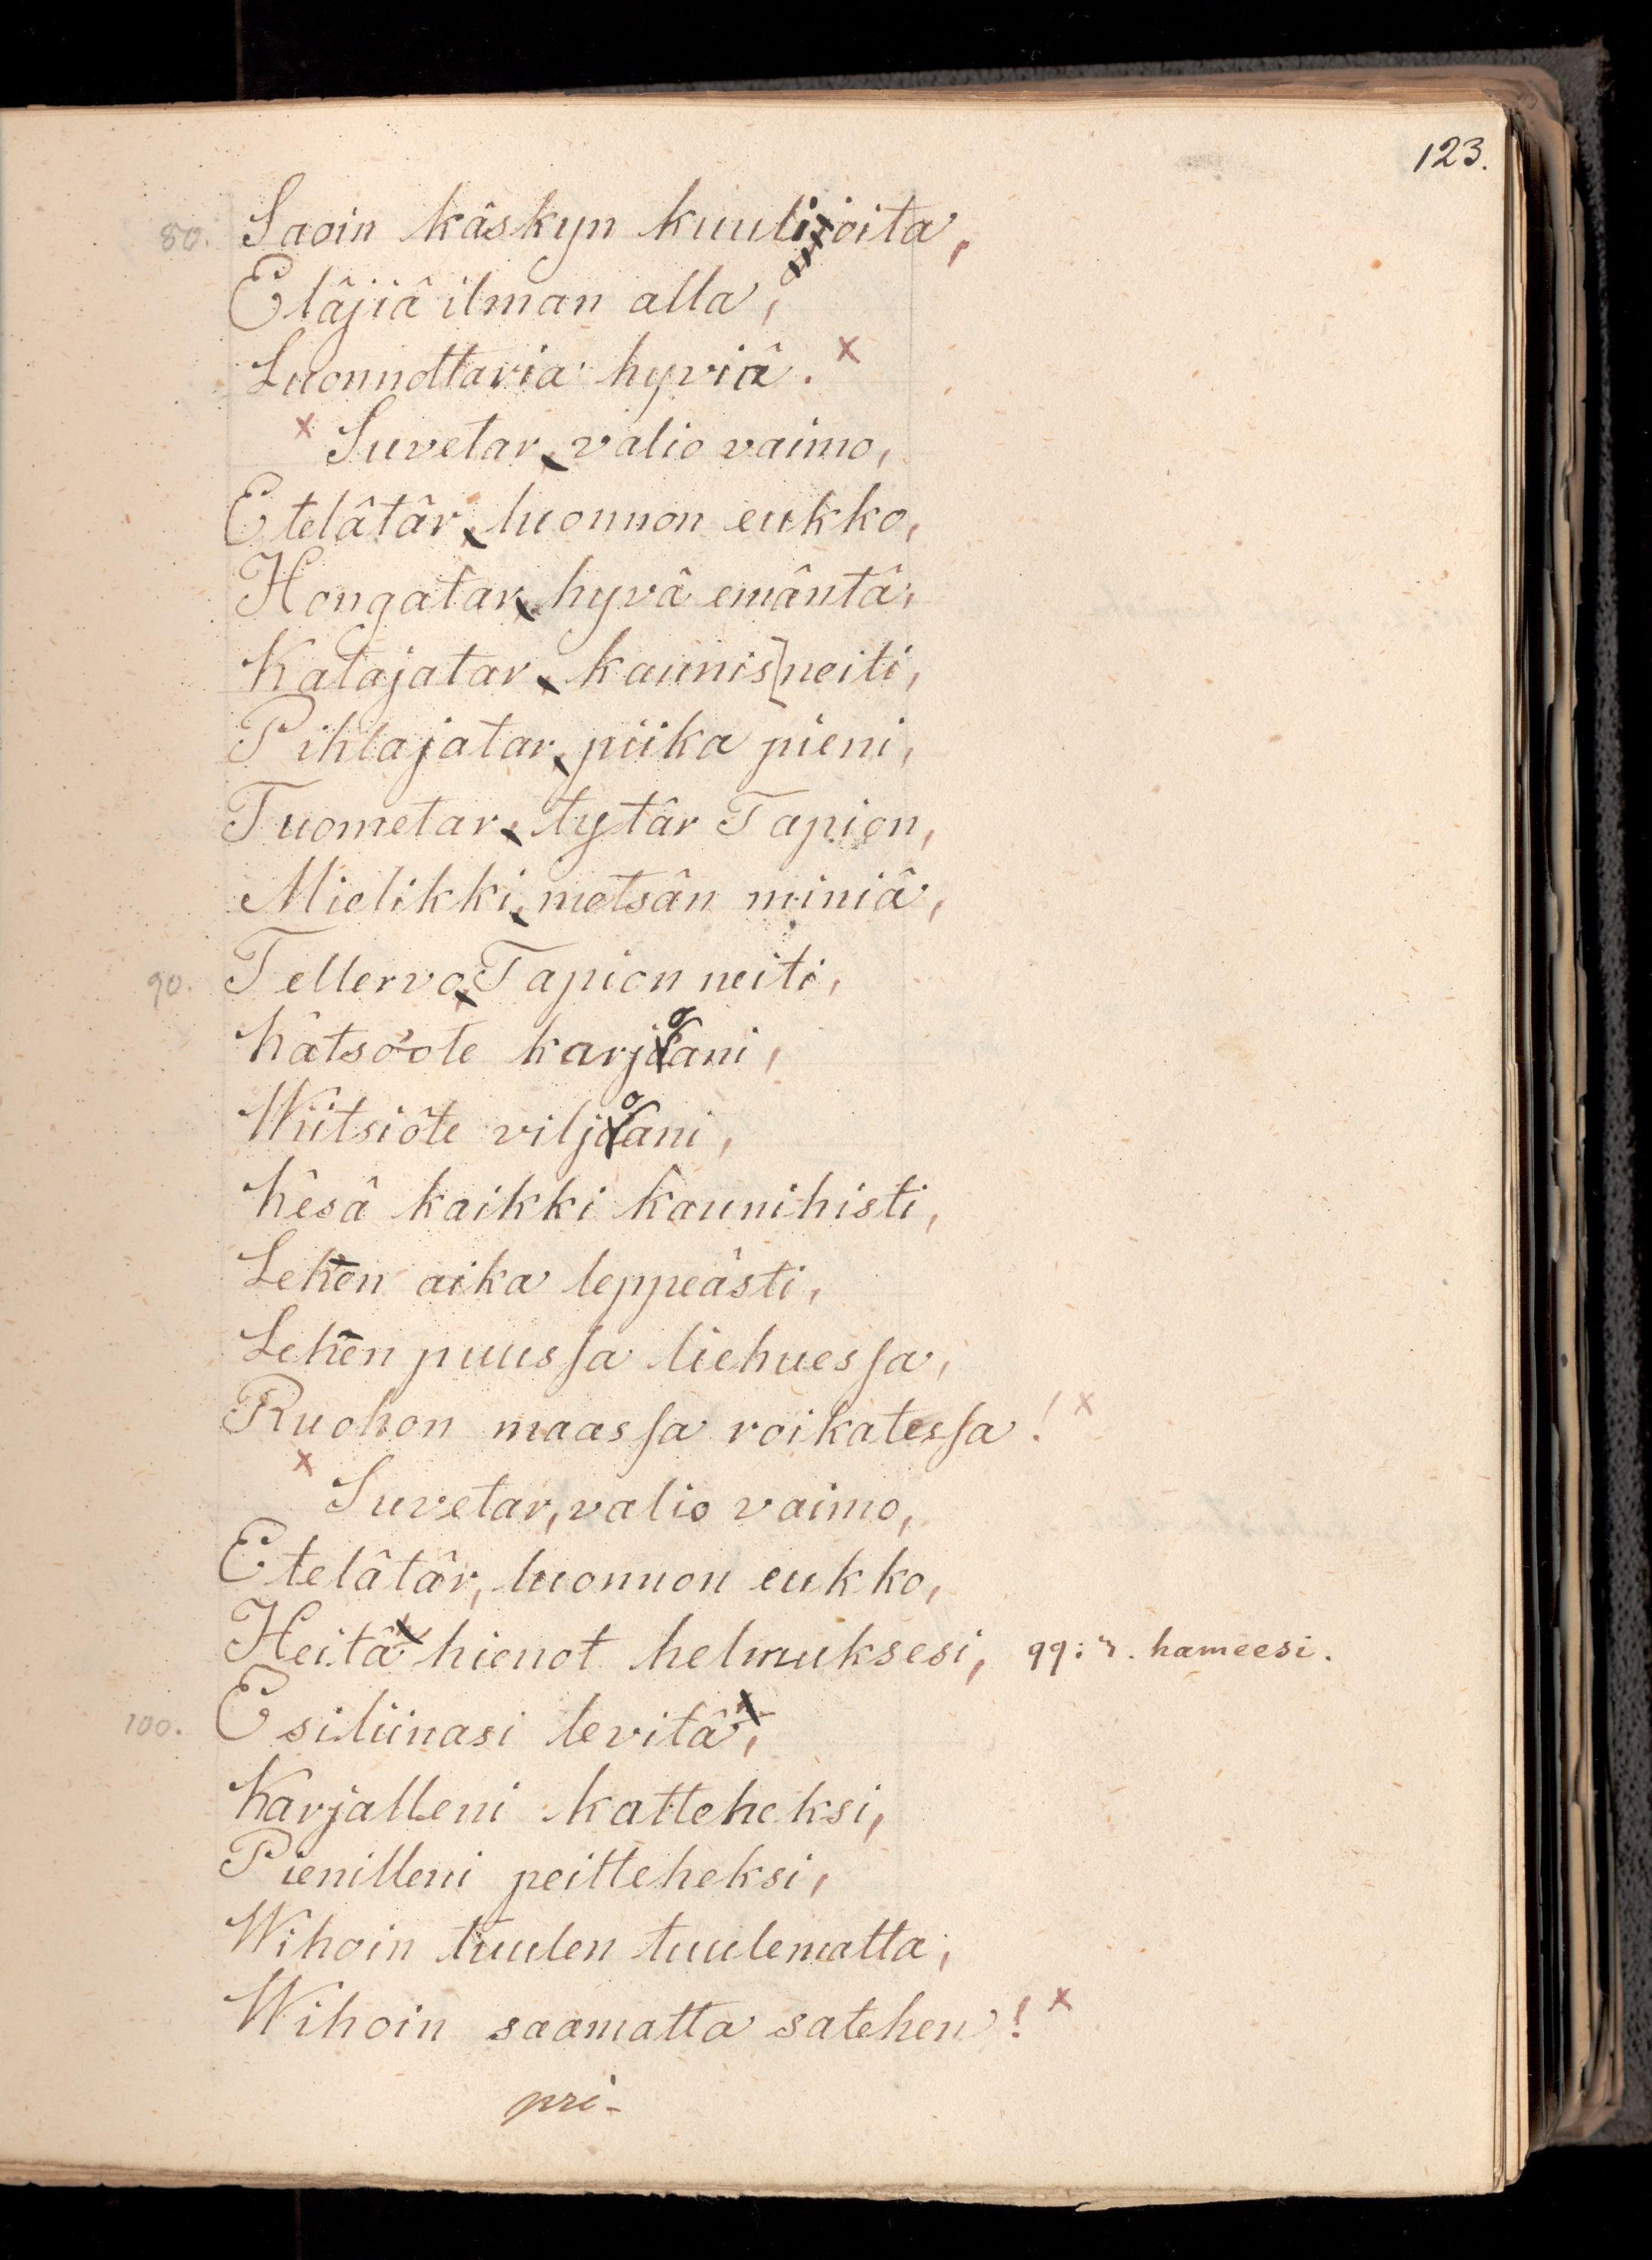 123.
80. Saoin käskyn kuulijoita,
Eläjiä ilman alla,
Luonnottaria hyviä. x
x Suvetar, valio vaimo,
Etelätär, luonnon eukko,
Hongatar, hyvä emäntä,
Katajatar, kaunis[neiti,
Pihlajatar, piika pieni,
Tuometar, tytär Tapion,
Mielikki, metsän miniä,
90. Tellervo, Tapion neiti,
Kätsööte karjoani,
Wiitsiöte viljoani,
Kesä kaikki kaunihisti,
Lehen aika leppeästi,
Lehen puussa liehuessa,
Ruohon maassa roikatessa! x
x Suvetar, valio vaimo,
Etelätär, luonnon eukko,
Heitä hienot helmuksesi, 99: r. hameesi.
100. Esiliinasi levitä,
Karjalleni katteheksi,
Pienilleni peitteheksi,
Wihoin tuulen tuulematta,
Wihoin saamatta satehen! x
pri-